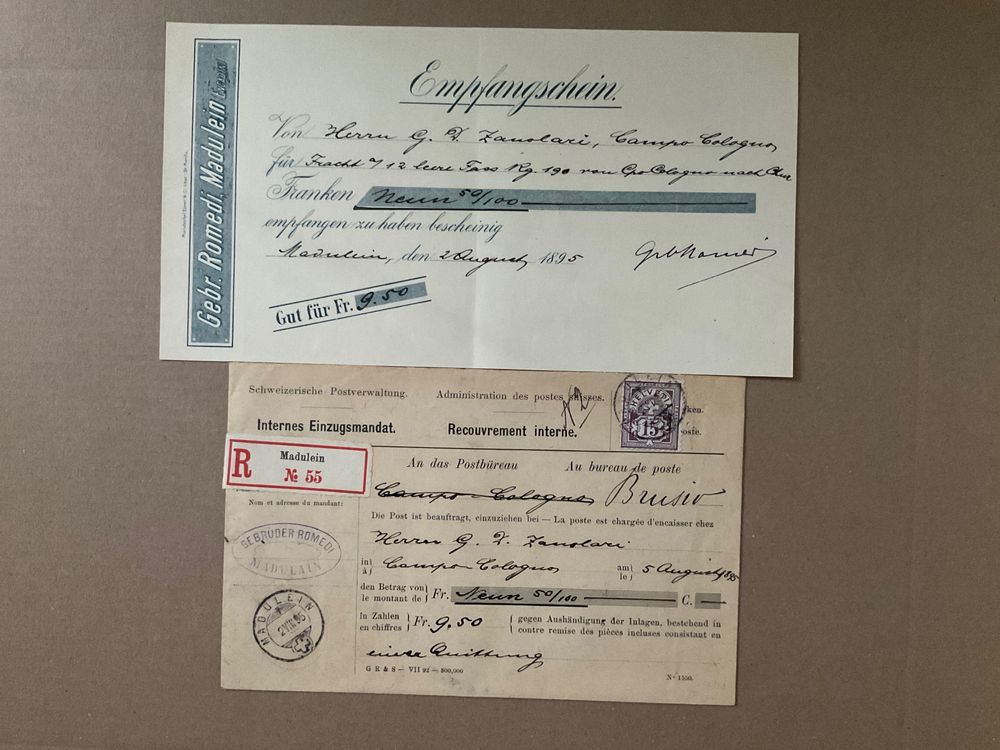 Gebr. Romedi, Madulein
Empfangschein.
Von Herrn G. D. Zanolari, Campo Cologno
für Fracht a/ 12 leere Fass Kg. 190 von Cpo Cologno nach Chur
Franken Neun 50/100
empfangen zu haben bescheinig
Madulein, den 2 August 1895
Gebr Romedi
Gut für Fr. 9.50
Schweizerische Postverwaltung. Administration des postes suisses.
Internes Einzugsmandat. Recouvrement interne.
HELVETIA
15
R Madulein
№ 55
An das Postbüreau Au bureau de poste
Campo-Cologno Brusio
Nom et adresse du mandant:
Die Post ist beauftragt, einzuziehen bei — La poste est chargée d'encaisser chez
GEBRÜDER ROMEDI
MADULEIN
Herrn G. D. Zanolari
in à Campo-Cologno am le 5 August 1895
den Betrag von le montant de Fr. Neun 50/100 C.
in Zahlen en chiffres Fr. 9.50 gegen Aushändigung der Inlagen, bestehend in contre remise des pièces incluses consistant en
MADULEIN
2 VIII 95
einer Quittung
G R & S — VII 92 — 500,000 N° 1550.